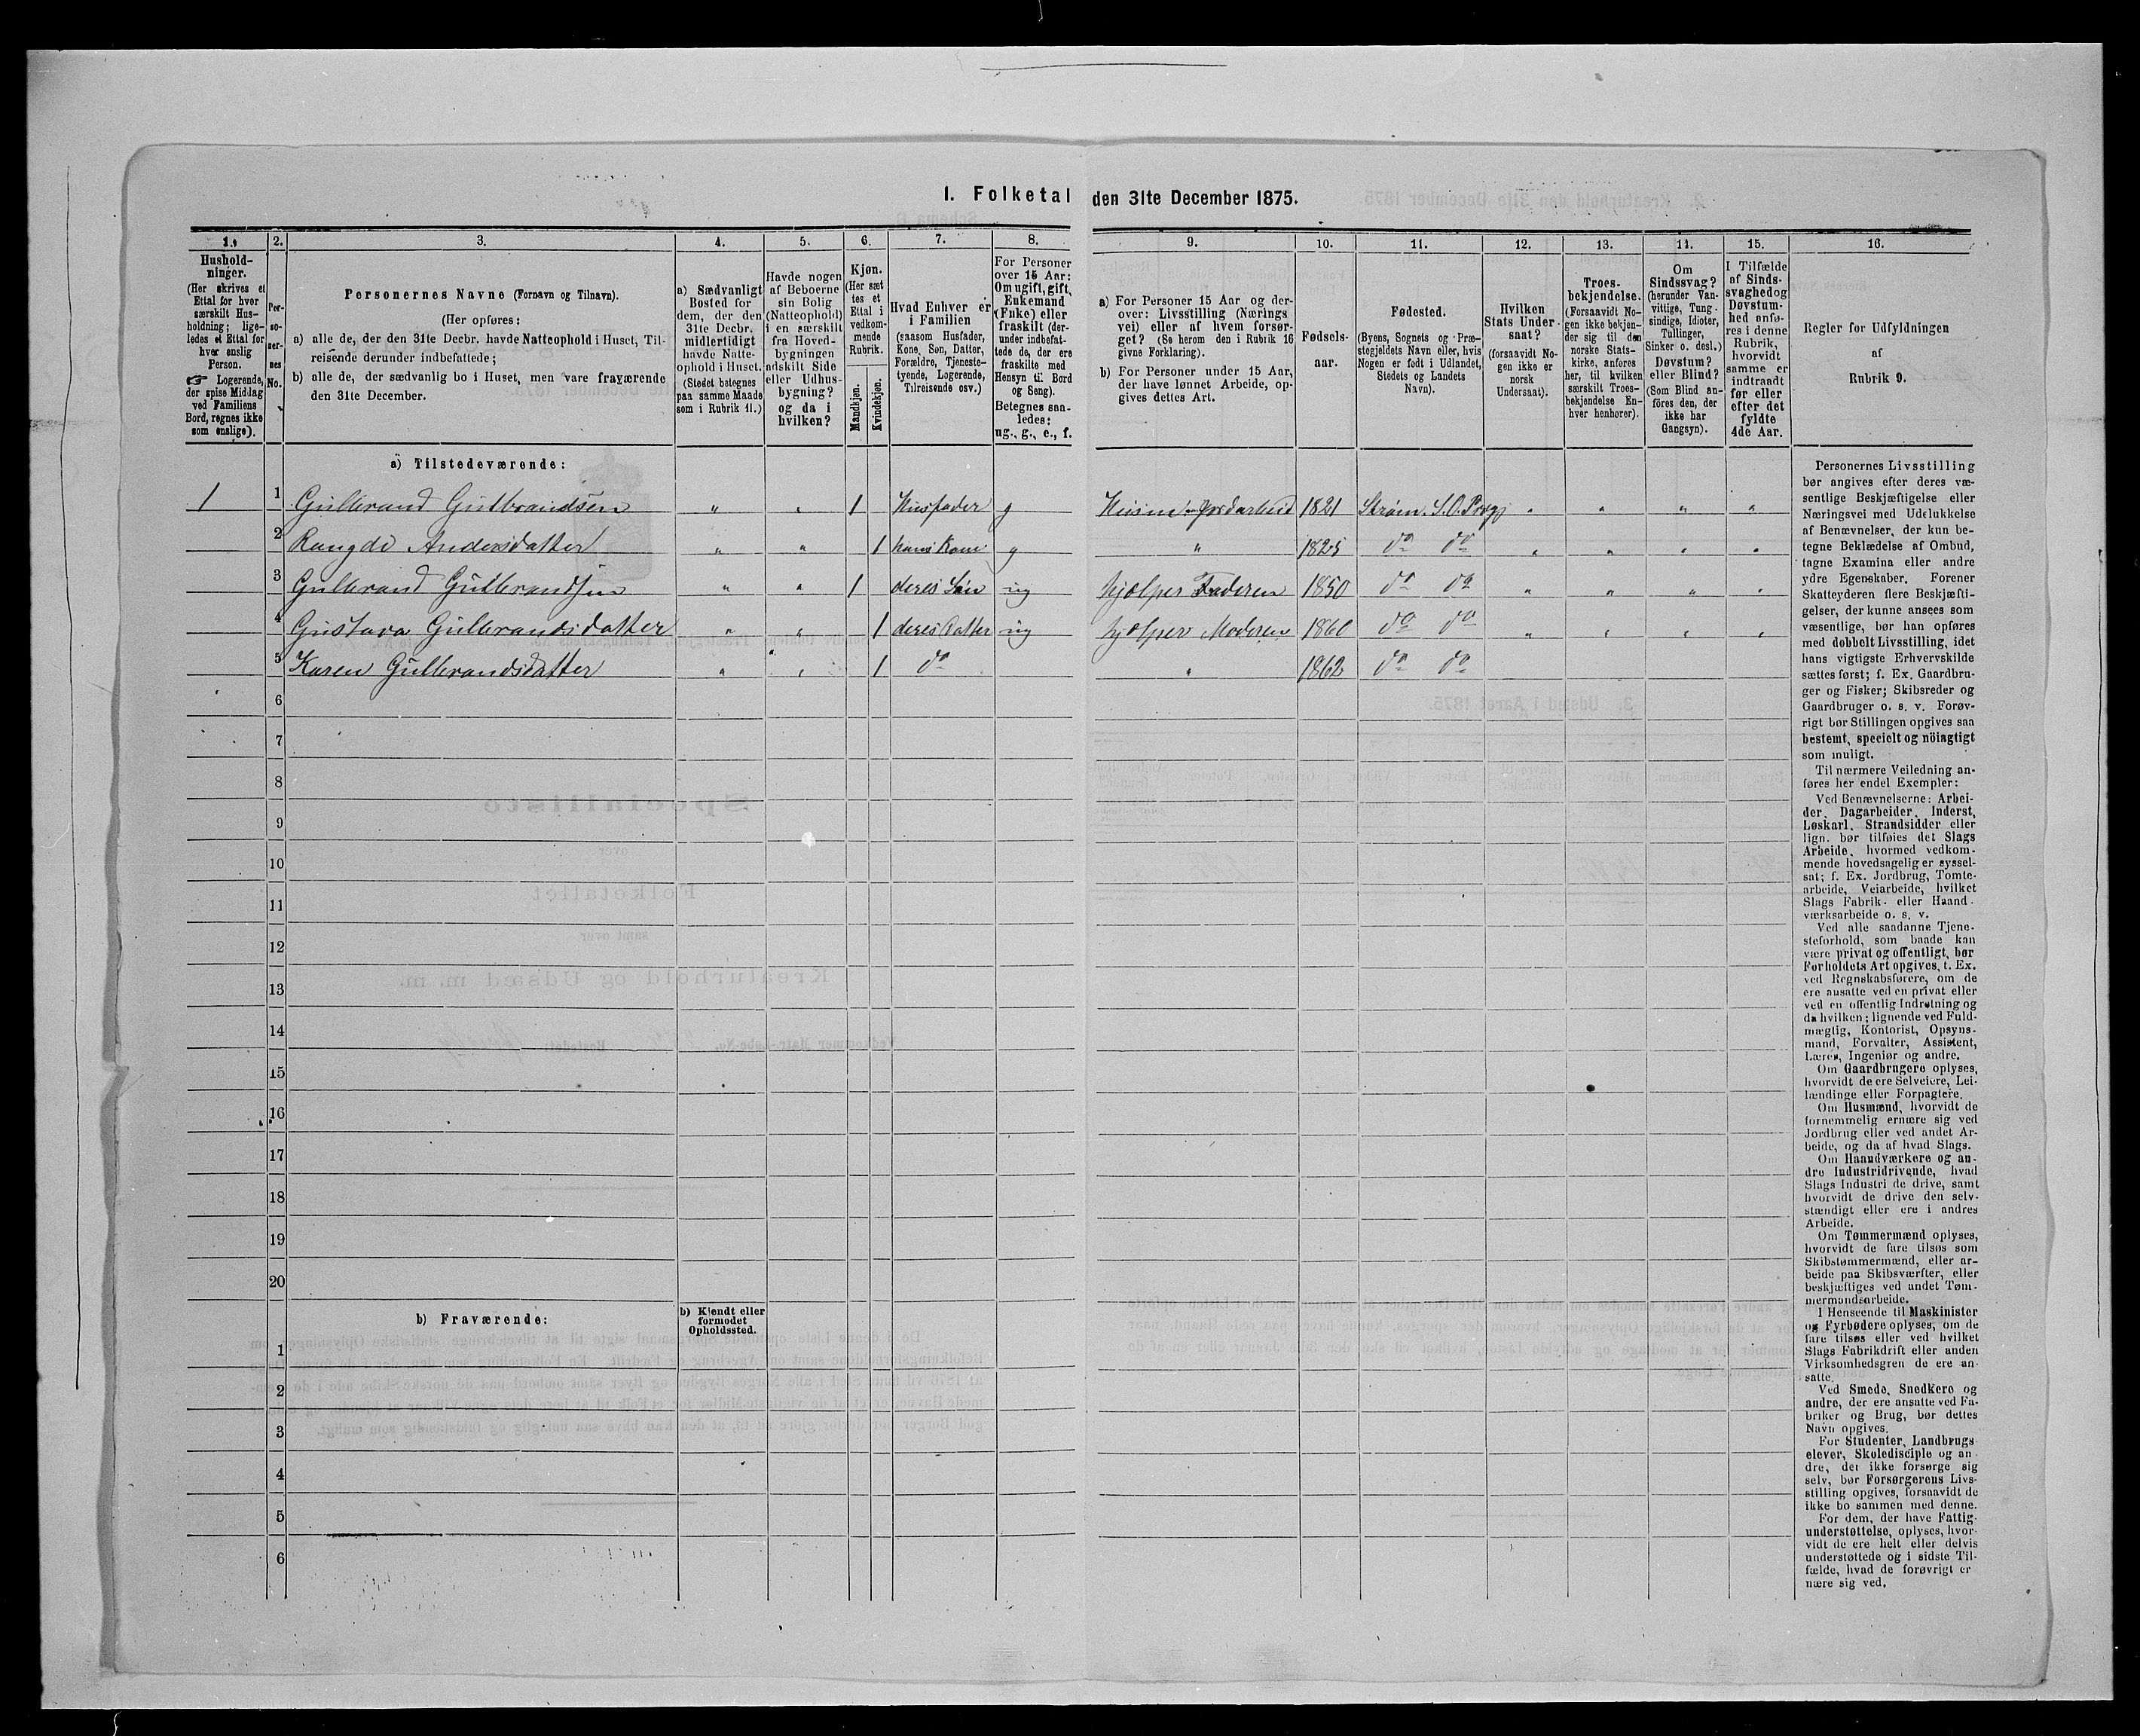 1. Folketal den 31te December 1875.
1. 2. 3. 4. 5. 6. 7. 8. 9. 10. 11. 12. 13. 14. 15. 16.
Hushold-
ninger.
(Her skrives et
Ettal for hver
særskilt Hus-
holdning; lige-
ledes et Ettal for
hver enslig
Person.
☞ Logerende,
der spise Middag
ved Familiens
Bord, regnes ikke
som enslige).
Per-
so-
ner-
nes
No.
Personernes Navne (Fornavn og Tilnavn).
(Her opføres:
a) alle de, der den 31te Decbr. havde Natteophold i Huset, Til-
reisende derunder indbefattede;
b) alle de, der sædvanlig bo i Huset, men vare fraværende
den 31te December.
a) Sædvanligt
Bosted for
dem, der den
31te Decbr.
midlertidigt
havde Natte-
ophold i Huset.
(Stedet betegnes
paa samme Maade
som i Rubrik 11.)
Havde nogen
af Beboerne
sin Bolig
(Natteophold)
i en særskilt
fra Hoved-
bygningen
adskilt Side
eller Udhus-
bygning?
og da i
hvilken?
Kjøn.
(Her sæt
tes et
Ettal i
vedkom-
mende
Rubrik.
Mandkjøn.
Kvindekjøn.
Hvad Enhver er
i Familien
(saasom Husfader,
Kone, Søn, Datter,
Forældre, Tjeneste-
tyende, Logerende,
Tilreisende osv.)
For Personer
over 15 Aar:
Om ugift, gift,
Enkemand
(Enke) eller
fraskilt (der-
under indbefat-
tede de, der ere
fraskilte med
Hensyn til Bord
og Seng).
Betegnes saa-
ledes:
ug., g., e., f.
a) For Personer 15 Aar og der-
over: Livsstilling (Nærings
vei) eller af hvem forsør-
get? (Se herom den i Rubrik 16
givne Forklaring).
b) For Personer under 15 Aar,
der have lønnet Arbeide, op-
gives dettes Art.
Fødsels-
aar.
Fødested.
(Byens, Sognets og Præ-
stegjeldets Navn eller, hvis
Nogen er født i Udlandet,
Stedets og Landets
Navn).
Hvilken
Stats Under-
saat?
(forsaavidt No-
gen ikke er
norsk
Undersaat).
Troes-
bekjendelse.
(Forsaavidt No-
gen ikke bekjen-
der sig til den
norske Stats-
kirke, anføres
her, til hvilken
særskilt Troes-
bekjendelse En-
hver henhører).
Om
Sindssvag?
(herunder Van-
vittige, Tung-
sindige, Idioter,
Tullinger,
Sinker o. desl.)
Døvstum?
eller Blind?
(Som Blind an-
føres den, der
ikke har
Gangsyn).
I Tilfælde
af Sinds-
svaghed og
Døvstum-
hed anfø-
res i denne
Rubrik,
hvorvidt
samme er
indtraadt
før eller
efter det
fyldte
4de Aar.
Regler for Udfyldningen
af
Rubrik 9.
a) Tilstedeværende:
1 1 Gulbrand Gulbrandsen " " 1 Husfader g Husm. Jordarbeid 1821 Strøm S.O. Prgj " " " "
2 Rangdi Andersdatter " " 1 hans Kone g " 1825 do do " " " "
3 Gulbrand Gulbrandsen " " 1 deres Søn ug hjælper Faderen 1850 do do " " " "
4 Gustava Gulbrandsdatter " " 1 deres Datter ug hjælper Moderen 1860 do do " " " "
5 Karen Gulbrandsdatter " " 1 do " 1862 do do
6
7
8
9
10
11
12
13
14
15
16
17
18
19
20
b) Fraværende:
b) Kjendt eller
formodet
Opholdssted.
1
2
3
4
5
6
Personernes Livsstilling
bør angives efter deres væ-
sentlige Beskjæftigelse eller
Næringsvei med Udelukkelse
af Benævnelser, der kun be-
tegne Beklædelse af Ombud,
tagne Examina eller andre
ydre Egenskaber. Forener
Skatteyderen flere Beskjæfti-
gelser, der kunne ansees som
væsentlige, bør han opføres
med dobbelt Livsstilling, idet
hans vigtigste Erhvervskilde
sættes først; f. Ex. Gaardbru-
ger og Fisker; Skibsreder og
Gaardbruger o. s. v. Forøv-
rigt bør Stillingen opgives saa
bestemt, specielt og nöiagtigt
som muligt.
Til nærmere Veiledning an-
føres her endel Exempler:
Ved Benævnelserne: Arbei-
der, Dagarbeider, Inderst,
Løskarl, Strandsidder eller
lign. bør tilføies det Slags
Arbeide, hvormed vedkom-
mende hovedsagelig er syssel-
sat; f. Ex. Jordbrug, Tomte-
arbeide, Veiarbeide, hvilket
Slags Fabrik- eller Haand-
værksarbeide o. s. v.
Ved alle saadanne Tjene-
steforhold, som baade kan
være privat og offentligt, bør
Forholdets Art opgives, f. Ex.
ved Regnskabsførere, om de
ere ansatte ved en privat eller
ved en offentlig Indretning og
da hvilken; lignende ved Fuld-
mægtig, Kontorist, Opsyns-
mand, Forvalter, Assistent,
Lærer, Ingeniør og andre.
Om Gaardbrugere oplyses,
hvorvidt de ere Selveiere, Lei-
lændinge eller Forpagtere.
Om Husmænd, hvorvidt de
fornemmelig ernære sig ved
Jordbrug eller ved andet Ar-
beide, og da af hvad Slags.
Om Haandværkere og an-
dre Industridrivende, hvad
Slags Industri de drive, samt
hvorvidt de drive den selv-
stændigt eller ere i andres
Arbeide.
Om Tømmermænd oplyses,
hvorvidt de fare tilsøs som
Skibstømmermænd, eller ar-
beide paa Skibsværfter, eller
beskjæftiges ved andet Tøm-
mermandsarbeide.
I Henseende til Maskinister
og Fyrbødere oplyses, om de
fare tilsøs eller ved hvilket
Slags Fabrikdrift eller anden
Virksomhedsgren de ere an-
satte.
Ved Smede, Snedkere og
andre, der ere ansatte ved Fa-
briker og Brug, bør dettes
Navn opgives.
For Studenter, Landbrugs-
elever, Skoledisciple og an-
dre, der ikke forsørge sig
selv, bør Forsørgerens Livs-
stilling opgives, forsaavidt de
ikke bo sammen med denne.
For dem, der have Fattig-
understøttelse, oplyses, hvor-
vidt de ere helt eller delvis
understøttede og i sidste Til-
fælde, hvad de forøvrigt er
nære sig ved.